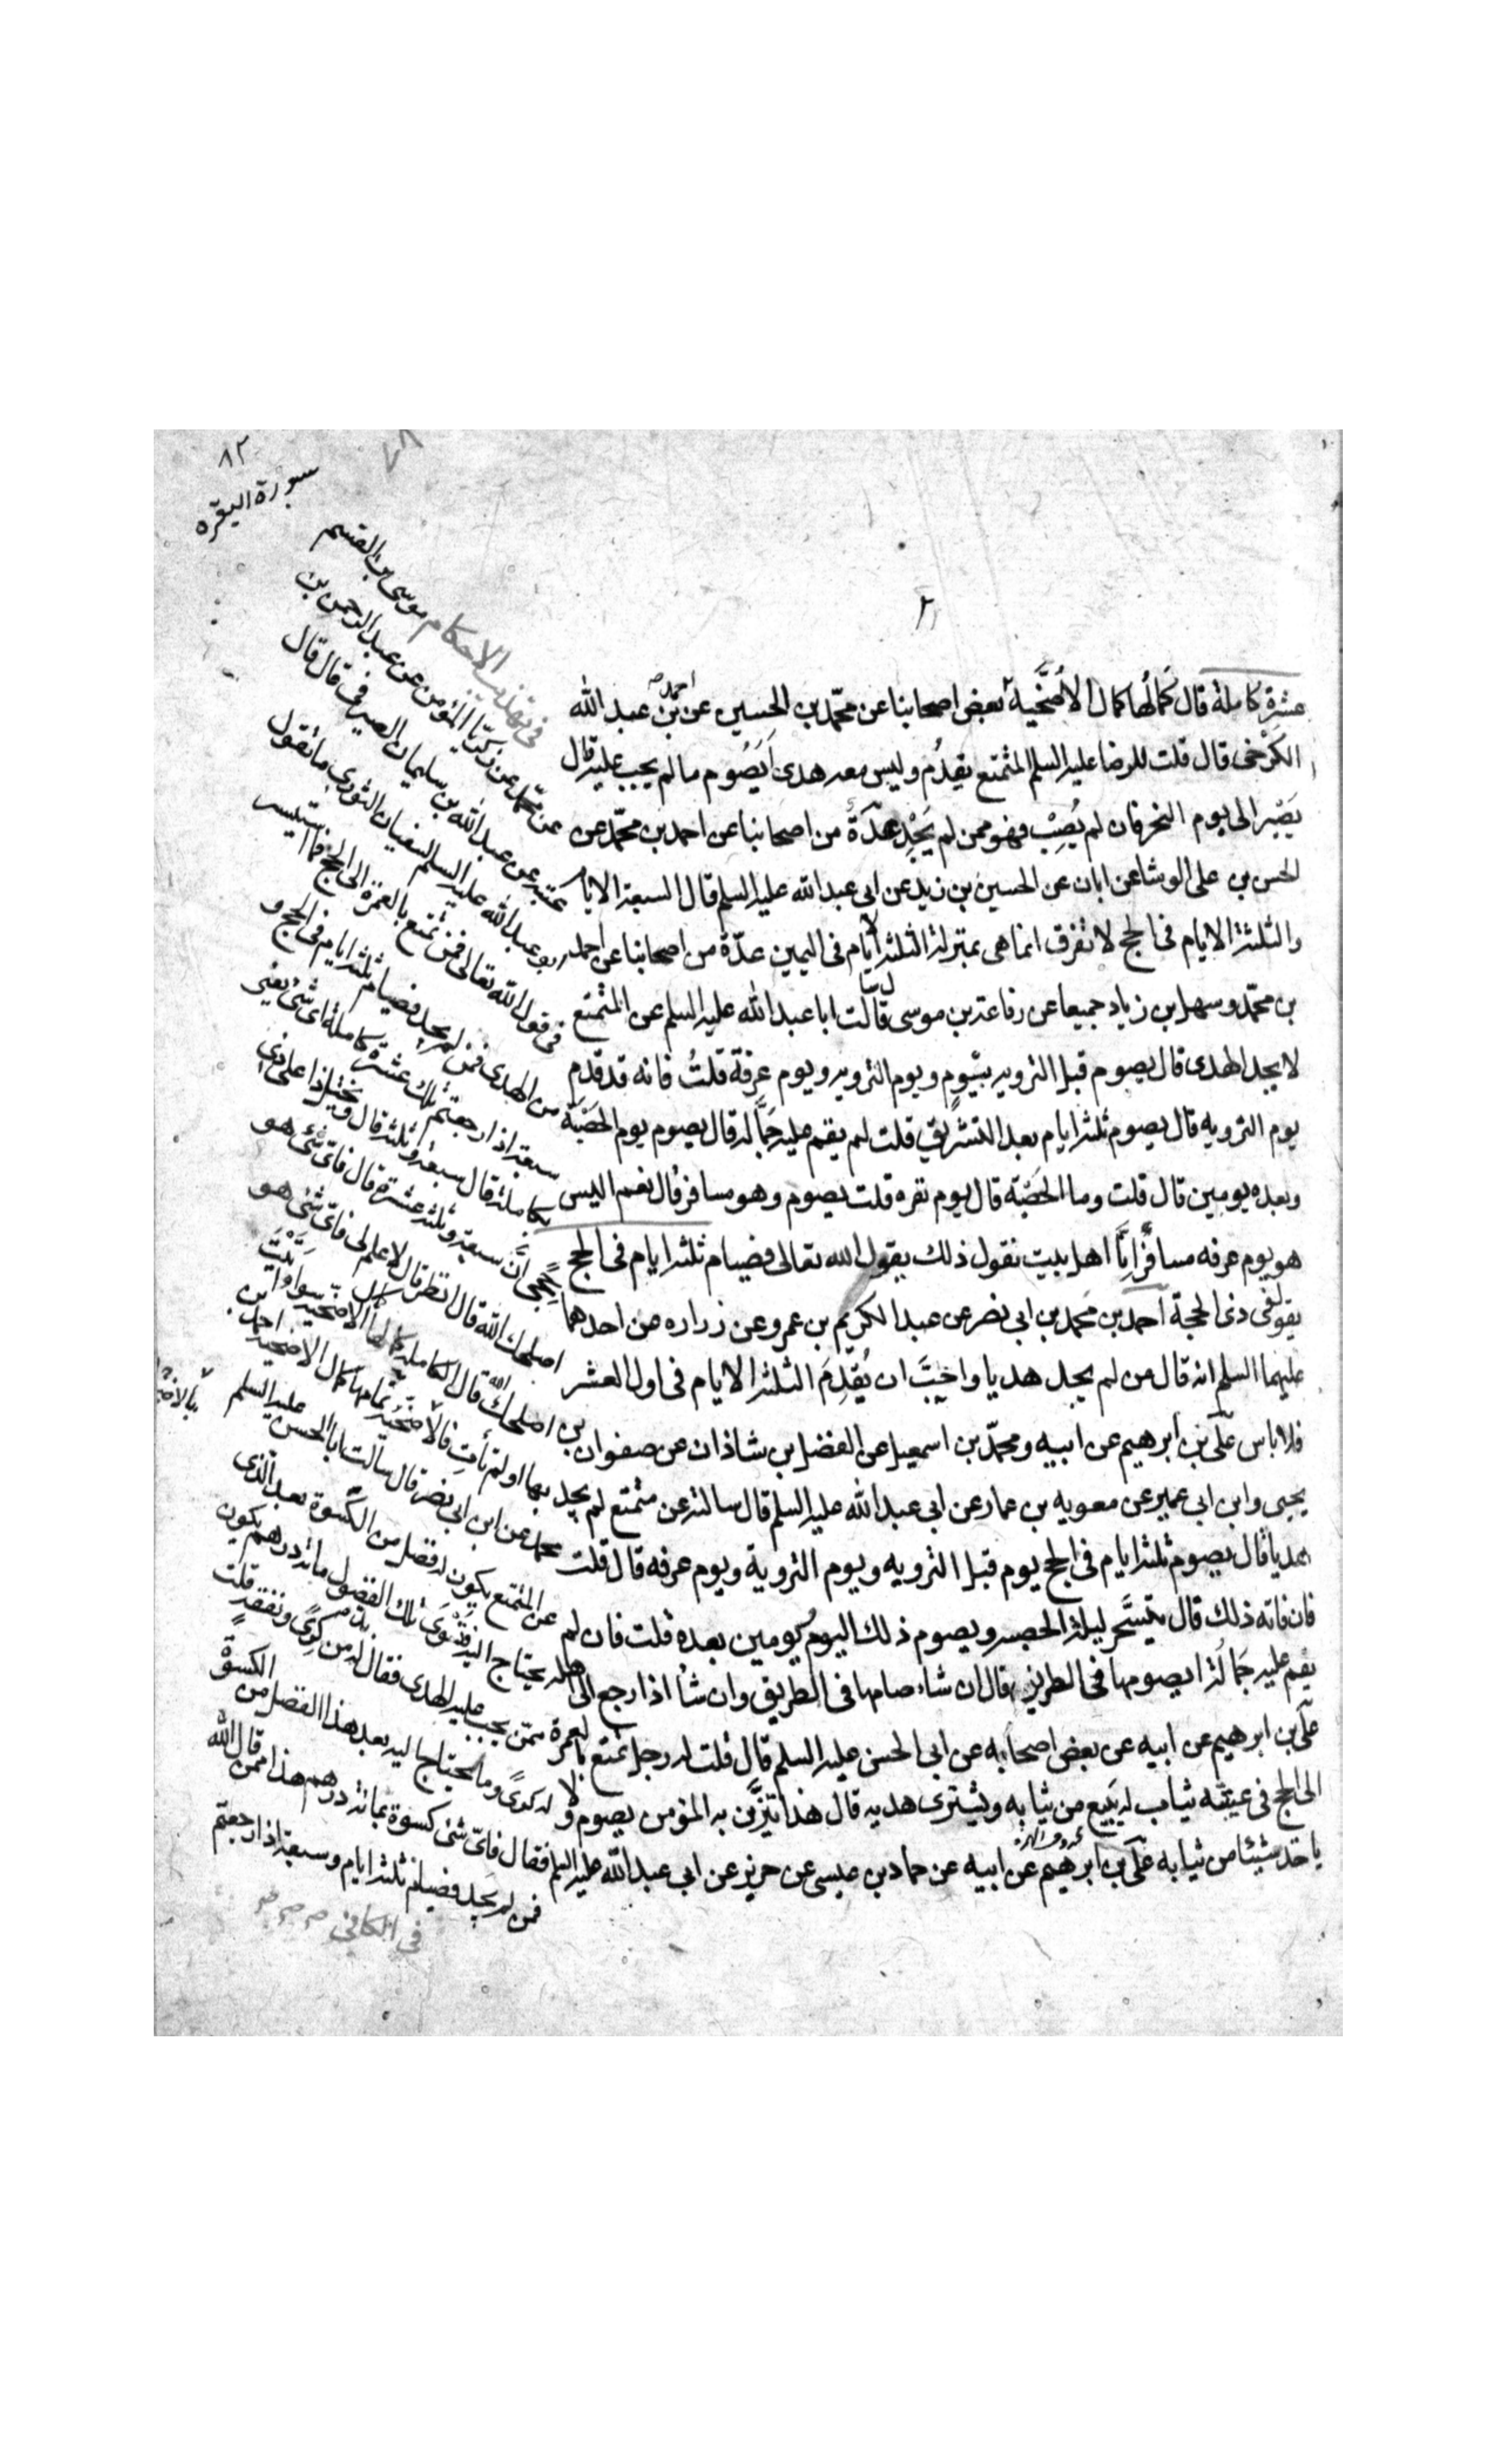 ٨٢
سورة البقره
عشرة كاملة قال كمالها كمال الاضحية بعض اصحابنا عن محمد بن الحسين عن احمد بن عبد الله
الكرخى قال قلت للرضا عليه السلم المتمتع يقدم وليس معه هدى ايصوم ما لم يجب عليه قال
يصبر الى يوم النحر فان لم يصب فهو ممن لم يجد عدة من اصحابنا عن احمد بن محمد عن
الحسن بن على الوشا عن ابان عن الحسين بن زيد عن ابى عبد الله عليه السلم قال السبعة الايام
والثلثة الايام فى الحج لا تفرق انما هى بمنزلة الثلثة الايام فى اليمين عدة من اصحابنا عن احمد
بن محمد وسهل بن زياد جميعا عن رفاعة بن موسى قال سالت ابا عبد الله عليه السلم عن المتمتع
لا يجد الهدى قال يصوم قبل الترويه بيوم ويوم الترويه ويوم عرفة قلت فانه قد قدم
يوم الترويه قال يصوم ثلثة ايام بعد التشريق قلت لم يقم عليه جماله قال يصوم يوم الحصبة
وبعده يومين قال قلت وما الحصبة قال يوم نفره قلت يصوم وهو مسافر قال نعم اليس
هو يوم عرفه مسافرا انا اهل بيت نقول ذلك يقول الله تعالى فصيام ثلثة ايام فى الحج
يقول فى ذى الحجة احمد بن محمد بن ابى نصر عن عبد الكريم بن عمرو عن زراره عن احدهما
عليهما السلم انه قال من لم يجد هديا واحب ان يقدم الثلثة الايام فى اول العشر
فلا باس على بن ابرهيم عن ابيه ومحمد بن اسمعيل عن الفضل بن شاذان عن صفوان بن
يحيى وابن ابى عمير عن معويه بن عمار عن ابى عبد الله عليه السلم قال سالته عن متمتع لم يجد
هديا قال يصوم ثلثة ايام فى الحج يوم قبل الترويه ويوم التروية ويوم عرفه قال قلت
فان فاته ذلك قال يتسحر ليلة الحصبه ويصوم ذلك اليوم ويومين بعده قلت فان لم
يقم عليه جماله ايصومها فى الطريق قال ان شاء صامها فى الطريق وان شاء اذا رجع الى اهله
على بن ابرهيم عن ابيه عن بعض اصحابه عن ابى الحسن عليه السلم قال قلت له رجل تمتع بالعمرة
الى الحج فى عيبته ثياب له يبيع من ثيابه ويشترى هديه قال هذا يتزين به المؤمن يصوم ولا
ياخذ شيئا من ثيابه على بن ابرهيم عن ابيه عن حماد بن عيسى عن حريز عن ابى عبد الله عليه السلم
فى تهذيب الاحكام موسى بن القسم
عن محمد عن زكريا المؤمن عن عبد الرحمن بن
عتبه عن عبد الله بن سليمان الصيرفى قال قال
ابو عبد الله عليه السلم لسفيان الثورى ما تقول
فى قول الله تعالى فمن تمتع بالعمرة الى الحج فما استيسر
من الهدى فمن لم يجد فصيام ثلثة ايام فى الحج و
سبعة اذا رجعتم تلك عشرة كاملة اى شئ يعنى
بكاملة قال سبعة وثلثة قال ويختل ذا على ذى
حجى ان سبعة وثلثة عشرة قال فاى شئ هو
اصلحك الله قال انظر قال لا علم لى فاى شئ هو
اصلحك الله قال الكاملة كمالها كمال الاضحية سواء اتيت
بها او لم تات فالاضحية تمامها كمال الاضحية احمد بن
محمد عن ابن ابى نصر قال سالت ابا الحسن عليه السلم
عن المتمتع يكون له فضل من الكسوة بعد الذى
يحتاج اليه فتسوى تلك الفضول مائة درهم يكون
ممن يجب عليه الهدى فقال له بد من كرى ونفقة قلت
له كرى وما يحتاج اليه بعد هذا الفضل من الكسوة
فقال فاى شئ كسوة بمائة درهم هذا ممن قال الله
فمن لم يجد فصيام ثلثة ايام وسبعة اذا رجعتم
فى الكافى